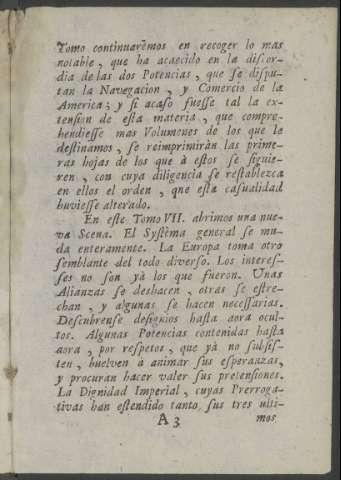 Tomo continuarèmos en recoger lo mas
notable, que ha acaecido en la discor-
dia de las dos Potencias, que se dispu-
tan la Navegacion, y Comercio de la
America; y si acaso fuesse tal la ex-
tension de esta materia, que compre-
hendiesse mas Volumenes de los que le
destinamos, se reimprimiràn las prime-
ras hojas de los que à estos se siguie-
ren, con cuya diligencia se restablezca
en ellos el orden, que esta casualidad
huviesse alterado.
En este Tomo VII. abrimos una nue-
va Scena. El Systèma general se mu-
da enteramente. La Europa toma otro
semblante del todo diverso. Los interes-
ses no son yà los que fueron. Unas
Alianzas se deshacen, otras se estre-
chan, y algunas se hacen necessarias.
Descubrense designios hasta aora ocul-
tos. Algunas Potencias contenidas hasta
aora, por respetos, que yà no subsis-
ten, buelven à animar sus esperanzas,
y procuran hacer valer sus pretensiones.
La Dignidad Imperial, cuyas Prerroga-
tivas han estendido tanto sus tres ulti-
A 3 mos